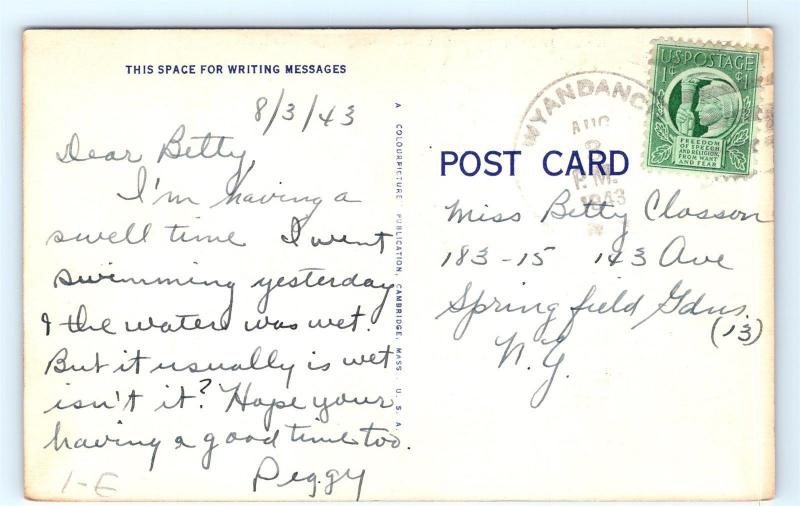 THIS SPACE FOR WRITING MESSAGES
8/3/43
Dear Betty,
I'm having a
swell time I went
swimming yesterday
& the water was wet.
But it usually is wet
isn't it? Hope your
having a good time too.
Peggy
1-E
A COLOURPICTURE PUBLICATION, CAMBRIDGE, MASS. U. S. A.
WYANDANCH
AUG
P.M.
1943
U.S. POSTAGE
1¢ ¢1
FREEDOM
OF SPEECH
AND RELIGION,
FROM WANT
AND FEAR
POST CARD
Miss Betty Closson
183-15 143 Ave
Springfield Gdns.
(13)
N.Y.